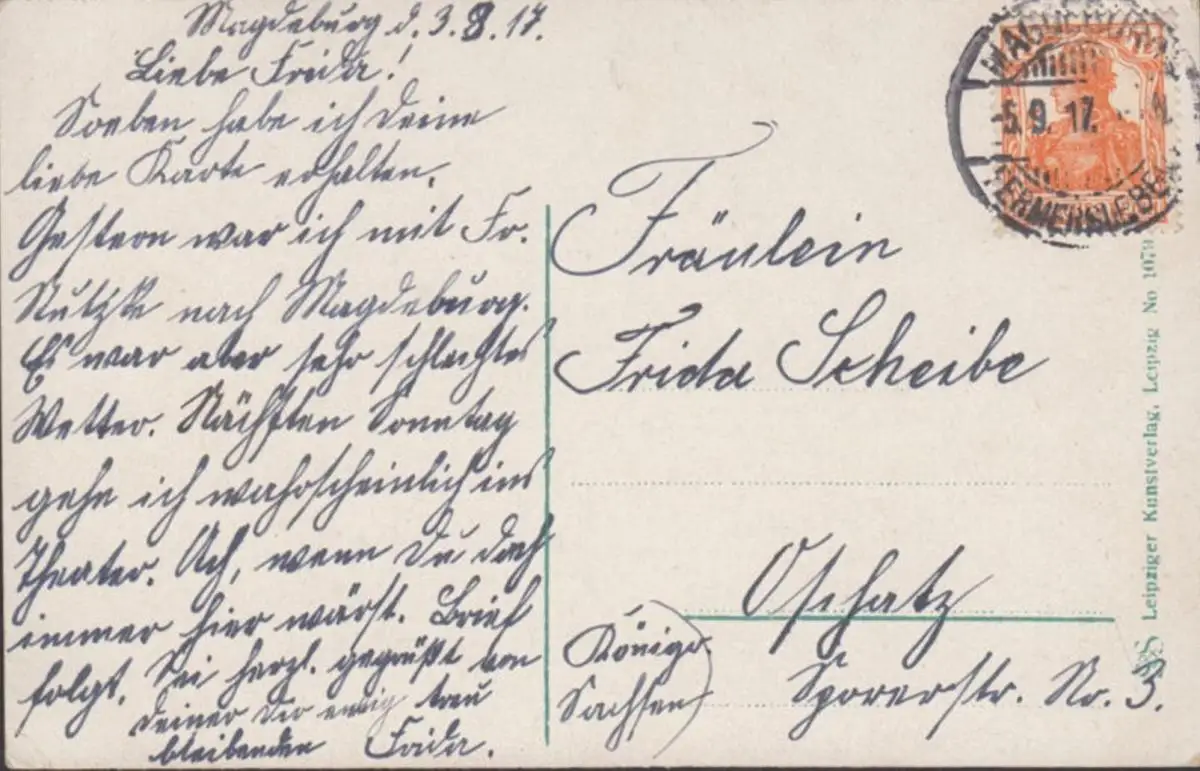 Magdeburg d. 3.8.17.
Liebe Frida!
Soeben habe ich Deine
liebe Karte erhalten.
Gestern war ich mit Fr.
nach Magdeburg.
Es war aber sehr schlechtes
Wetter. Nächsten Sonntag
gehe ich wahrscheinlich ins
Theater. Ach, wenn Du doch
immer hier wärst. Brief
folgt. Sei herzl. gegrüßt von
Deiner Dir ewig treu
bleibenden Frida.
MAGDEBURG
5.9.17.
FERMERSLEBEN
Fräulein
Frida Scheibe
Oschatz
(Königr.
Sachsen)
Sporerstr. Nr. 3.
Leipziger Kunstverlag, Leipzig No 1079